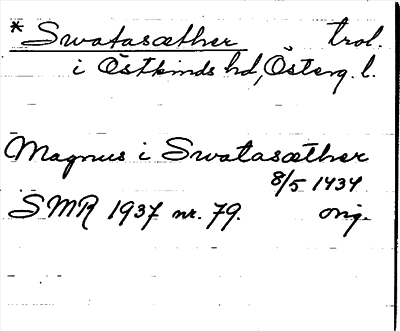 *Swatasæther trol.
i Östkinds hd, Österg. l.
Magnus i Swatasæther
8/5 1434
SMR 1937 nr. 79. orig.